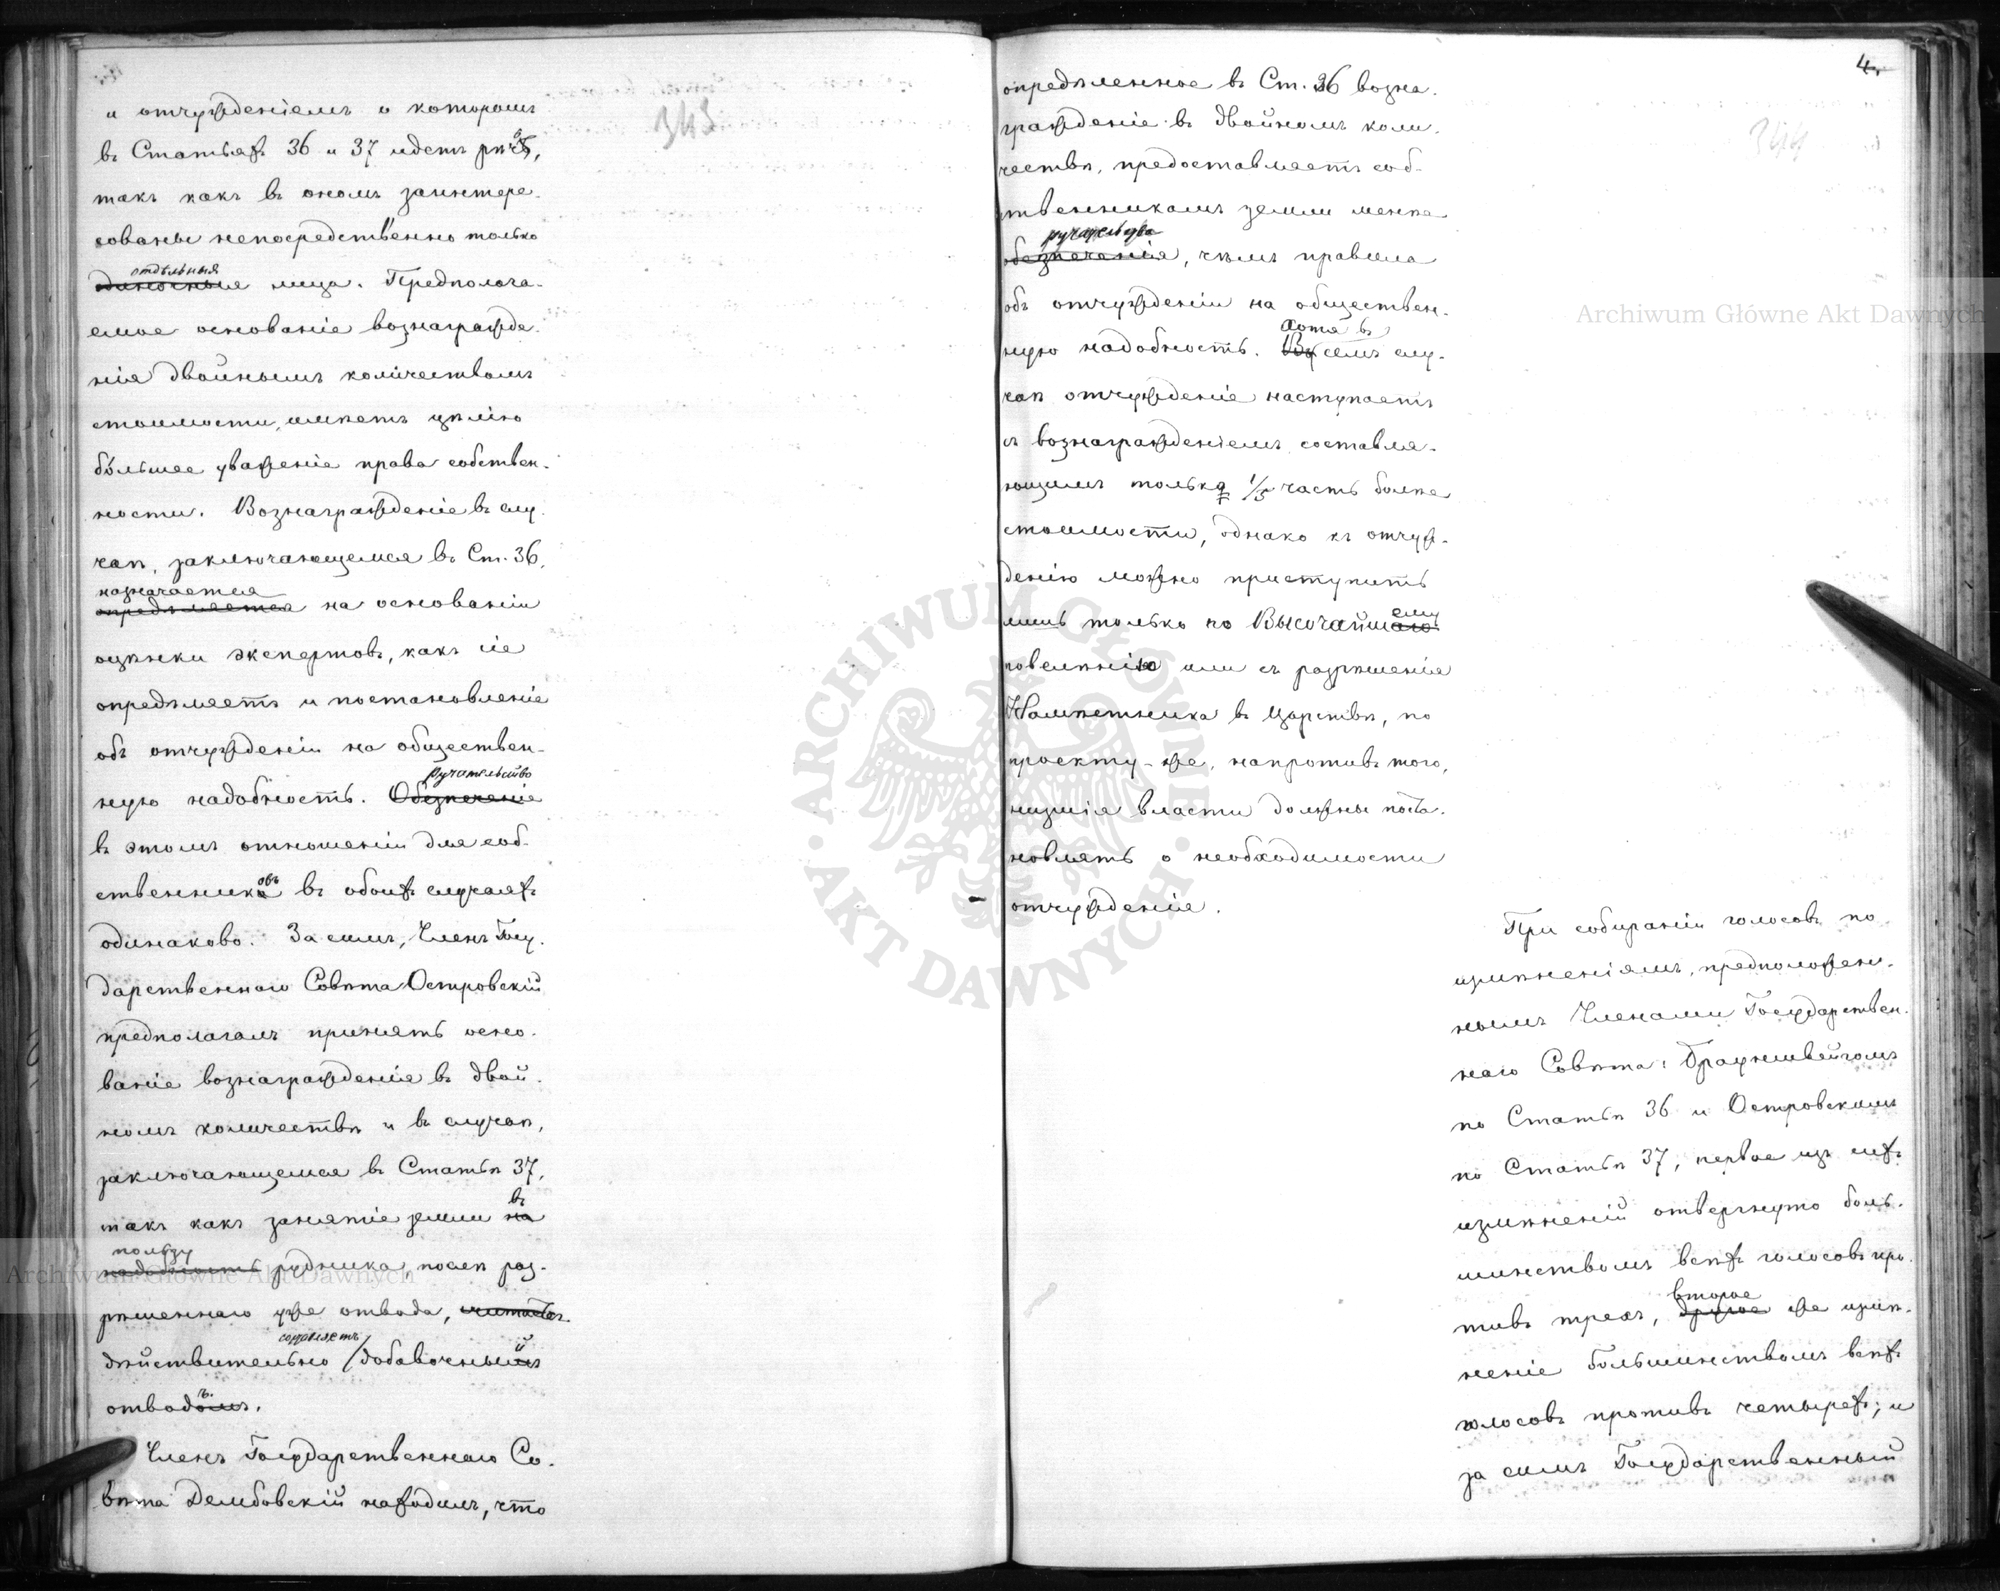 и отчужденіемъ о которомъ
въ Статьяхъ 36 и 37 идетъ рѣчь,
такъ какъ въ ономъ заинтере-
сованы непосредственно только
отдѣльныя
одиночныя лица. Предполага-
емое основаніе вознагражде-
нія двойнымъ количествомъ
стоимости, имѣетъ цѣлію
бóльшее уваженіе права собствен-
ности. Вознагражденіе въ слу-
чаѣ, заключающемся въ Ст. 36,
назначается
опредѣляется на основаніи
оцѣнки экспертовъ, какъ сіе
опредѣляетъ и постановленіе
объ отчужденіи на обществен-
ручательство
ную надобность. Обезпеченіе
въ этомъ отношеніи для соб-
ственниковъ въ обоихъ случаяхъ
одинаково. За симъ, Членъ Госу-
дарственнаго Совѣта Островскій
предполагалъ принять осно-
ваніе вознагражденія въ двой-
номъ количествѣ и въ случаѣ,
заключающемся въ Статьѣ 37,
въ
такъ какъ занятіе земли на
пользу
надобность рудника, послѣ раз-
рѣшеннаго уже отвода,
составляетъ
дѣйствительно добавочный
отводъ.
Членъ Государственнаго Со-
вѣта Дембовскій находилъ, что
343
4.
344
опредѣленное въ Ст. 36 возна-
гражденіе въ двойномъ коли-
чествѣ, предоставляетъ соб-
ственникамъ земли менѣе
ручательства
обезпеченія, чѣмъ правила
объ отчужденіи на обществен-
Хотя въ
ную надобность. Въ семъ слу-
чаѣ отчужденіе наступаетъ
съ вознагражденіемъ составля-
ющимъ только 1/5 часть болѣе
стоимости, однако къ отчуж-
денію можно приступить
лишь только по Высочайшему
повелѣнію или съ разрѣшенія
Намѣстника въ Царствѣ, по
проекту-же, напротивъ того,
низшія власти должны поста-
новлять о необходимости
отчужденія.
При собираніи голосовъ по
измѣненіямъ, предположен-
нымъ Членами Государствен-
наго Совѣта: Брауншвейгомъ
по Статьѣ 36 и Островскимъ
по Статьѣ 37, первое изъ сихъ
измѣненій отвергнуто боль-
шинствомъ всѣхъ голосовъ про-
второе
тивъ трехъ, другое же измѣ-
неніе большинствомъ всѣхъ
голосовъ противъ четырехъ; и
за симъ Государственный
Archiwum Główne Akt Dawnych
Archiwum Główne Akt Dawnych
ARCHIWUM GŁÓWNE AKT DAWNYCH